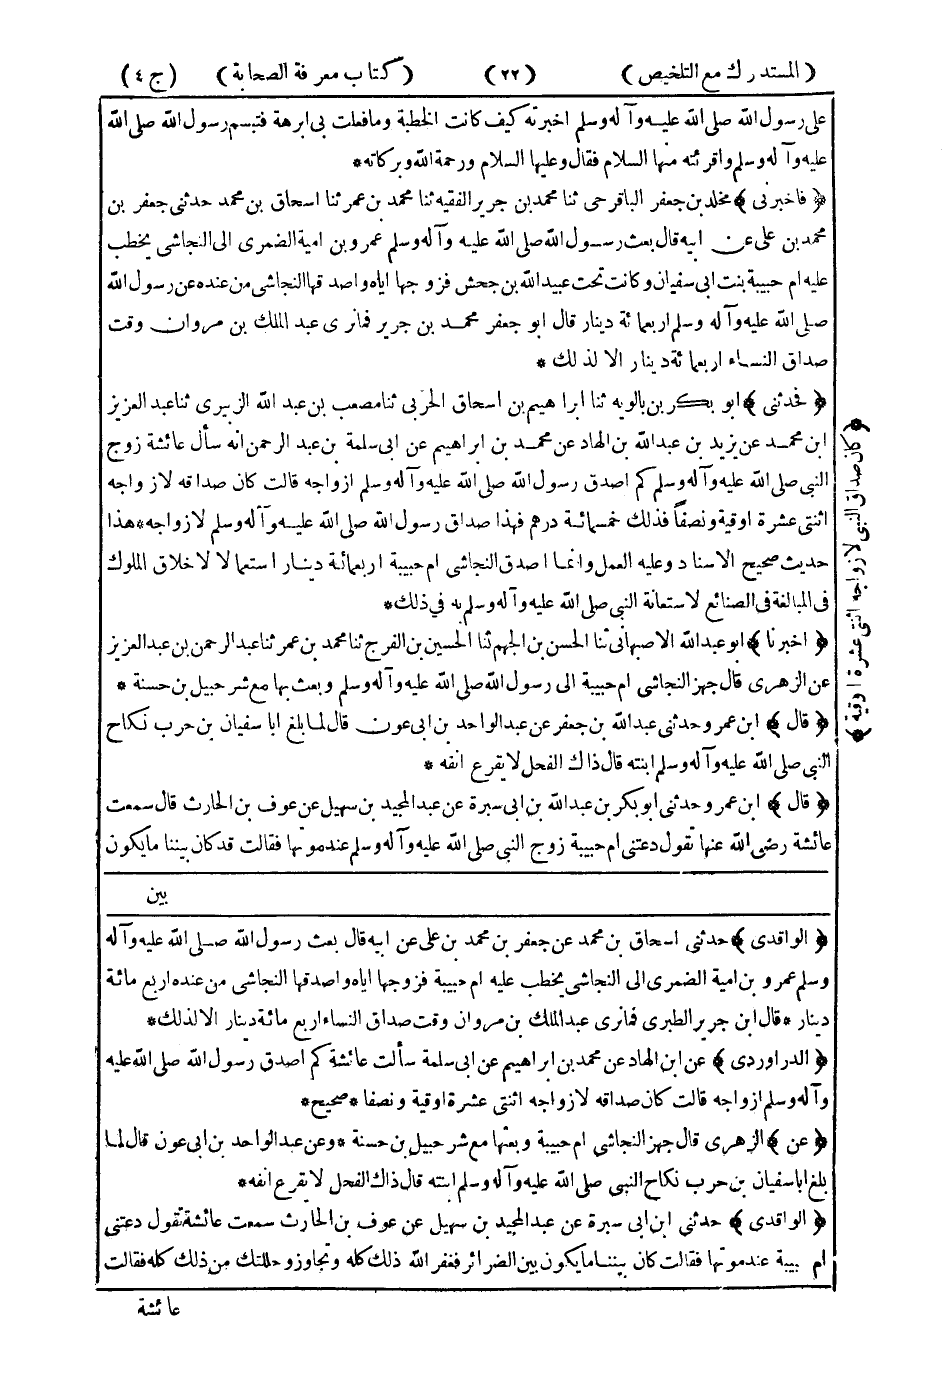 (المستدرك مع التلخيص) (٢٢) (كتاب معرفة الصحابة) (ج ٤)
على رسول الله صلى الله عليه وآله وسلم اخبرته كيف كانت الخطبة وما فعلت بى ابرهة فتبسم رسول الله صلى الله
عليه وآله وسلم واقرئته منها السلام فقال وعليها السلام ورحمة الله وبركاته*
﴿ فاخبرنى ﴾ مخلد بن جعفر الباقرحى ثنا محمد بن جرير الفقيه ثنا محمد بن عمر ثنا اسحاق بن محمد حدثنى جعفر بن
محمد بن على عن ابيه قال بعث رسول الله صلى الله عليه وآله وسلم عمرو بن امية الضمرى الى النجاشى يخطب
عليه ام حبيبة بنت ابى سفيان وكانت تحت عبيد الله بن جحش فزوجها اياه واصدقها النجاشى من عنده عن رسول الله
صلى الله عليه وآله وسلم اربعمائة دينار قال ابو جعفر محمد بن جرير فمانرى عبد الملك بن مروان وقت
صداق النساء اربعمائة دينار الا لذلك *
﴿ فحدثنى ﴾ ابو بكر بن بالويه ثنا ابراهيم بن اسحاق الحربى ثنا مصعب بن عبد الله الزبيرى ثنا عبد العزيز
ابن محمد عن يزيد بن عبد الله بن الهاد عن محمد بن ابراهيم عن ابى سلمة بن عبد الرحمن انه سأل عائشة زوج
النبى صلى الله عليه وآله وسلم كم اصدق رسول الله صلى الله عليه وآله وسلم ازواجه قالت كان صداقه لازواجه
اثنتى عشرة اوقية ونصفاً فذلك خمسمائة درهم فهذا صداق رسول الله صلى الله عليه وآله وسلم لازواجه*هذا
حديث صحيح الاسناد وعليه العمل وانما اصدق النجاشى ام حبيبة اربعمائة دينار استعمالا لاخلاق الملوك
فى المبالغة فى الصنائع لاستعانة النبى صلى الله عليه وآله وسلم به في ذلك*
﴿ اخبرنا ﴾ ابو عبد الله الاصبهانى ثنا الحسن بن الجهم ثنا الحسين بن الفرج ثنا محمد بن عمر ثنا عبد الرحمن بن عبد العزيز
عن الزهرى قال جهز النجاشى ام حبيبة الى رسول الله صلى الله عليه وآله وسلم وبعث بها مع شرحبيل بن حسنة *
﴿ قال ﴾ ابن عمر وحدثنى عبد الله بن جعفر عن عبد الواحد بن ابى عون قال لما بلغ ابا سفيان بن حرب نكاح
النبى صلى الله عليه وآله وسلم ابنته قال ذاك الفحل لا يقرع انفه *
﴿ قال ﴾ ابن عمر وحدثنى ابو بكر بن عبد الله بن ابى سبرة عن عبد المجيد بن سهيل عن عوف بن الحارث قال سمعت
عائشة رضى الله عنها تقول دعتنى ام حبيبة زوج النبى صلى الله عليه وآله وسلم عند موتها فقالت قد كان بيننا مايكون
بين
﴿ كان صداق النبى لازواجه اثنتى عشرة اوقية ﴾
﴿ الواقدى ﴾ حدثنى اسحاق بن محمد عن جعفر بن محمد بن على عن ابيه قال بعث رسول الله صلى الله عليه وآله
وسلم عمرو بن امية الضمرى الى النجاشى يخطب عليه ام حبيبة فزوجها اياه واصدقها النجاشى من عنده اربع مائة
دينار *قال ابن جرير الطبرى فمانرى عبد الملك بن مروان وقت صداق النساء اربع مائة دينار الا لذلك*
﴿ الدراوردى ﴾ عن ابن الهاد عن محمد بن ابراهيم عن ابى سلمة سألت عائشة كم اصدق رسول الله صلى الله عليه
وآله وسلم ازواجه قالت كان صداقه لازواجه اثنتى عشرة اوقية ونصفا *صحيح*
﴿ عن ﴾ الزهرى قال جهز النجاشى ام حبيبة وبعثها مع شرحبيل بن حسنة *وعن عبد الواحد بن ابى عون قال لما
بلغ ابا سفيان بن حرب نكاح النبى صلى الله عليه وآله وسلم ابنته قال ذاك الفحل لا يقرع انفه*
﴿ الواقدى ﴾ حدثنى ابن ابى سبرة عن عبد المجيد بن سهيل عن عوف بن الحارث سمعت عائشة تقول دعتنى
ام حبيبة عند موتها فقالت كان بيننا مايكون بين الضرائر فغفر الله ذلك كله وتجاوز وحللتك من ذلك كله فقالت
عائشة